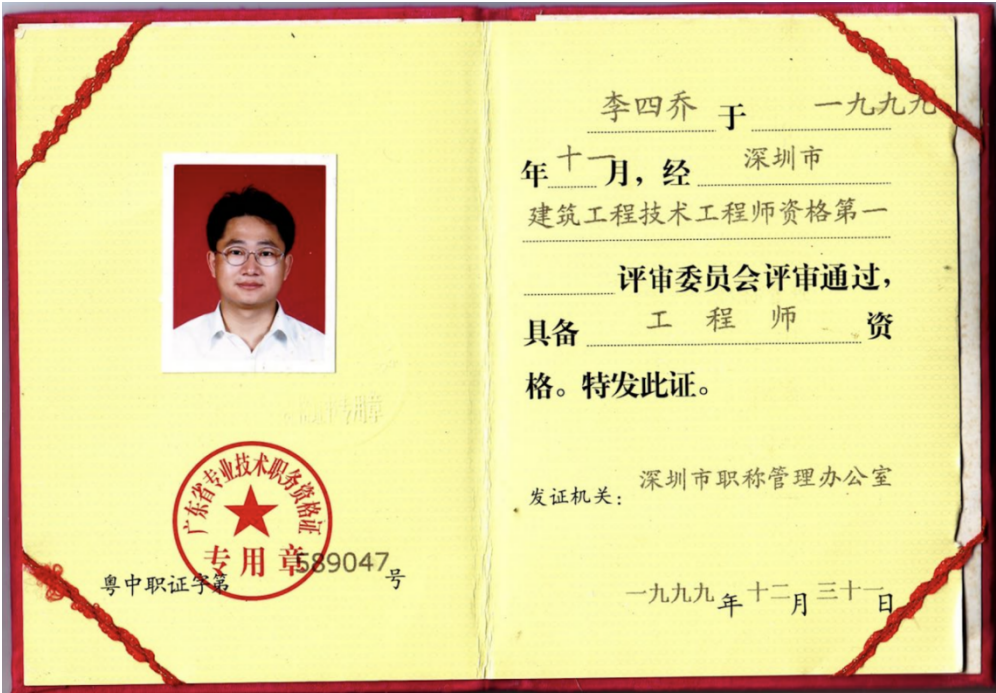 广东省专业技术职务资格证
专用章
粤中职证字第589047号
李四乔于一九九九
年十一月，经深圳市
建筑工程技术工程师资格第一
评审委员会评审通过，
具备工程师资
格。特发此证。
发证机关：深圳市职称管理办公室
一九九九年十二月三十一日